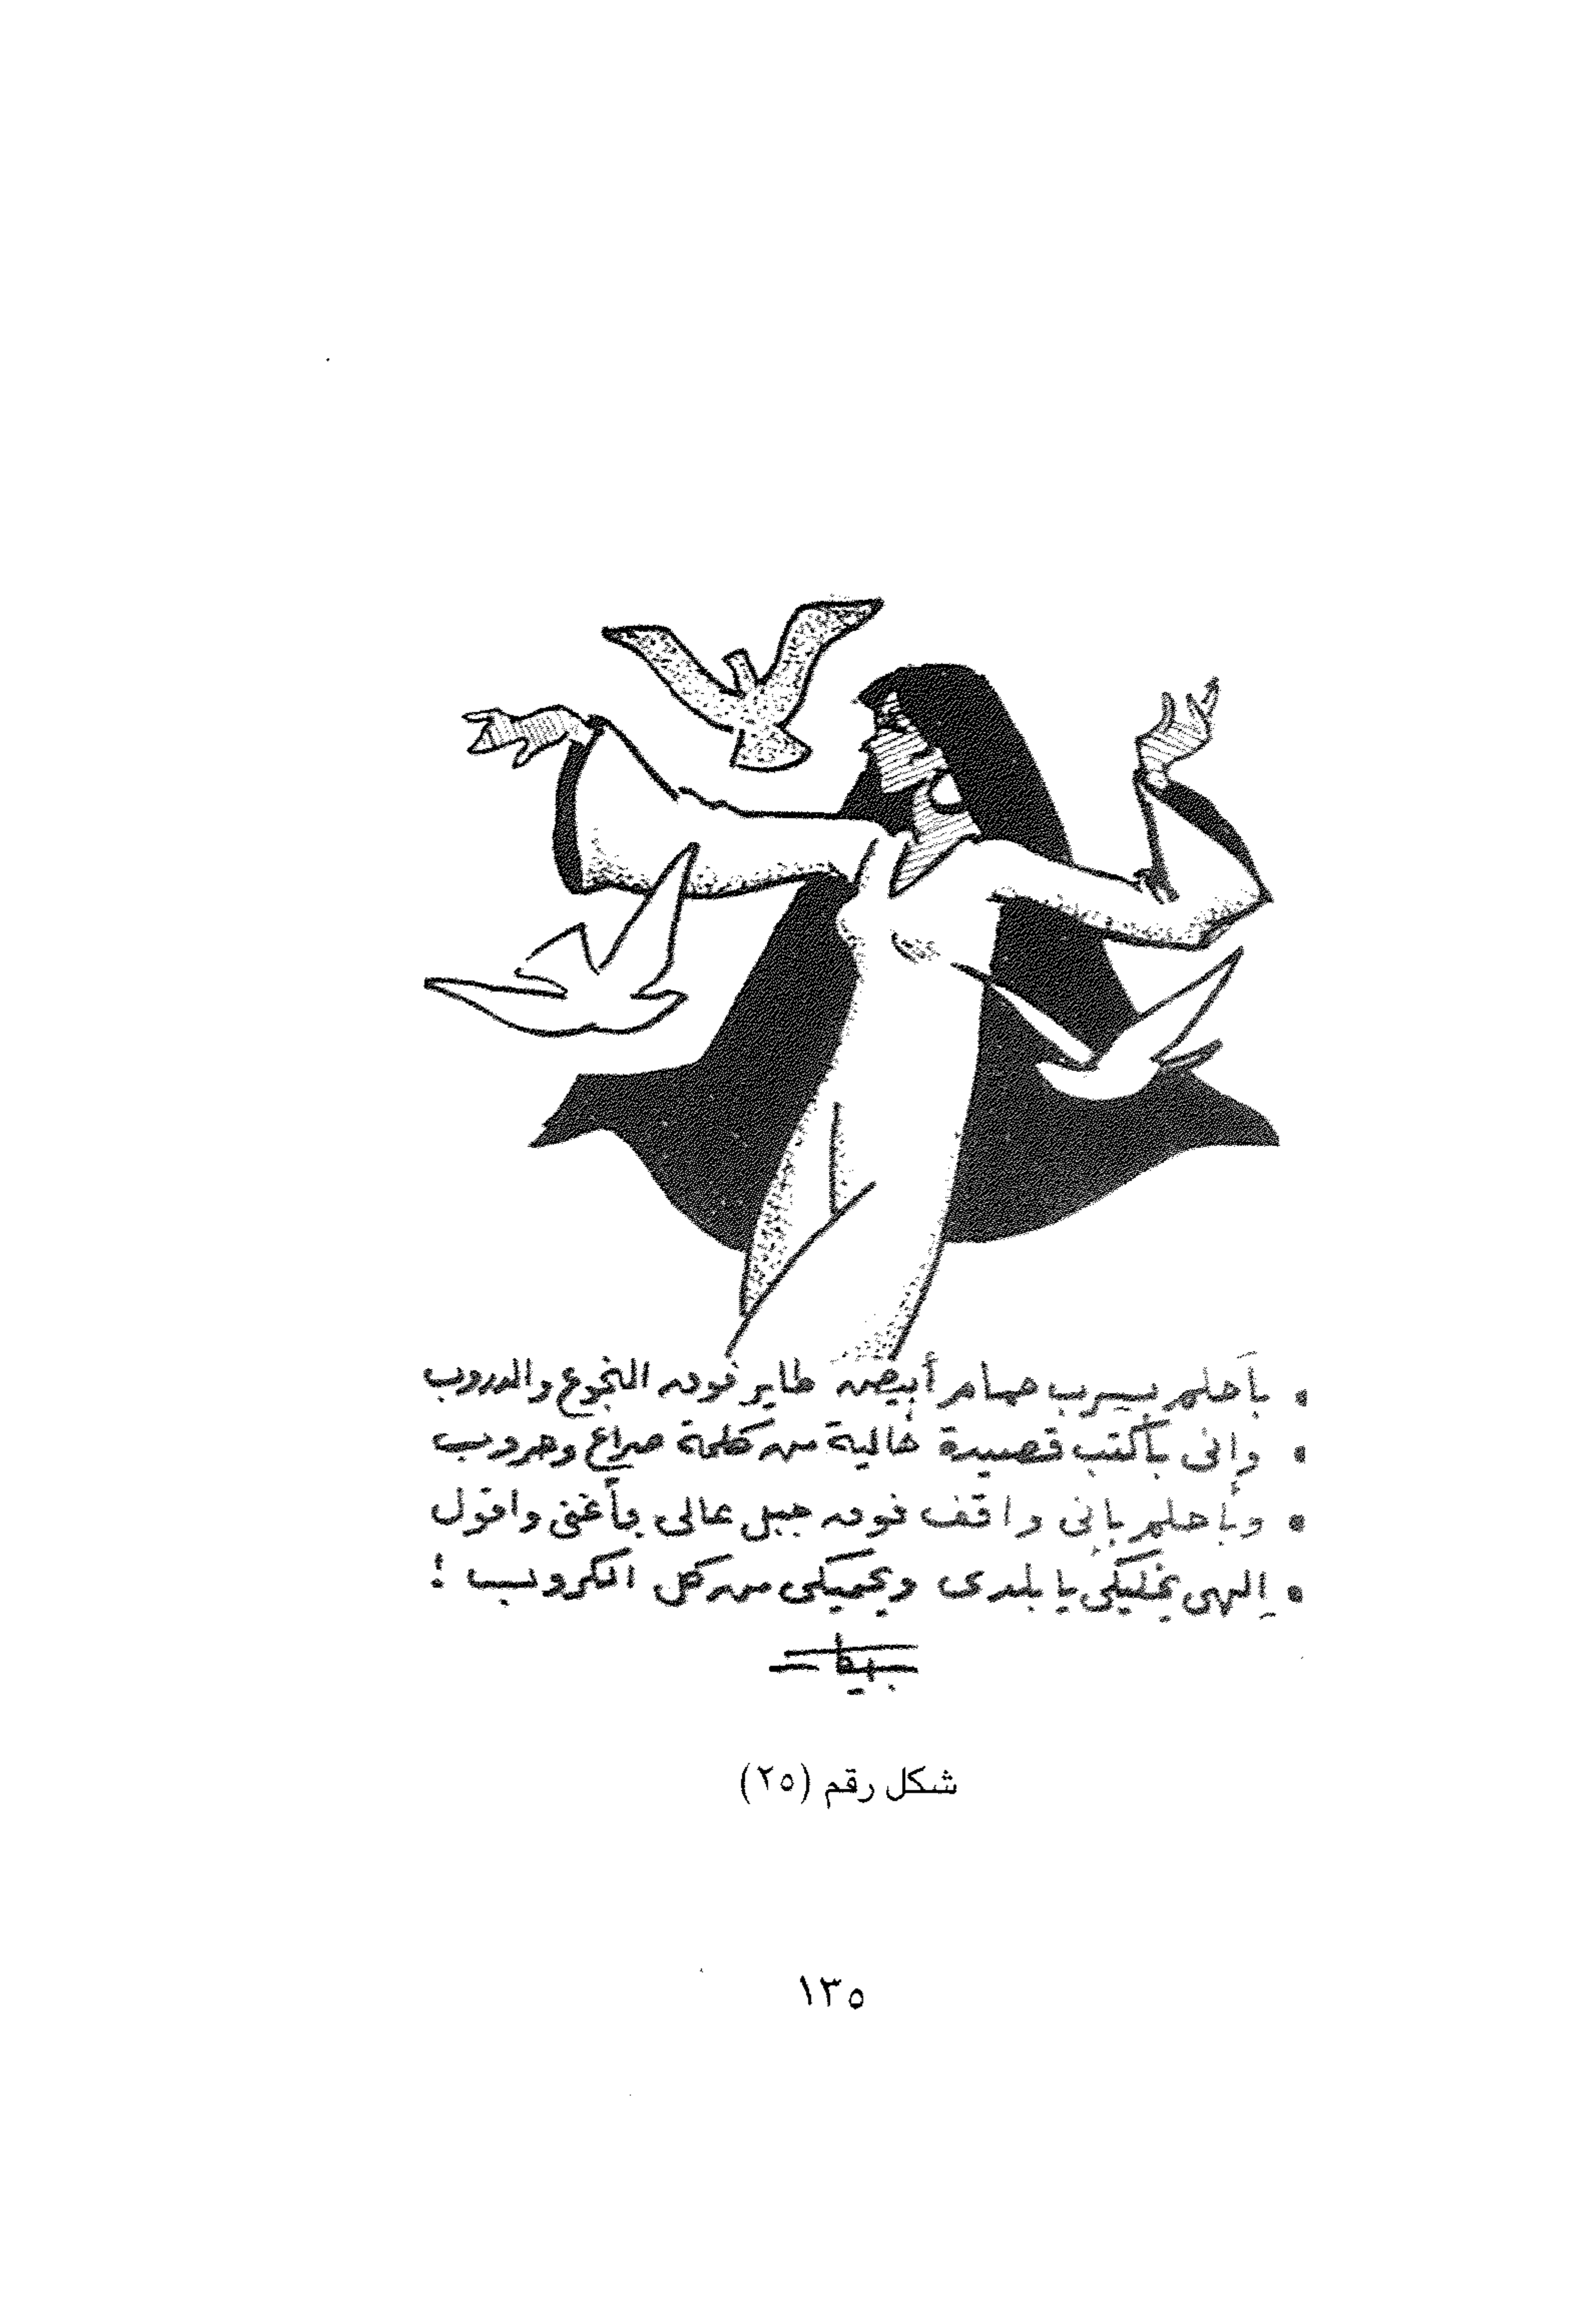 • بأحلم بسرب حمام أبيض طاير فوق النجوع والدروب
• وإنى بأكتب قصيدة خالية من كلمة صراع وحروب
• وبأحلم بإنى واقف فوق جبل عالى بأغنى واقول
• إلهى يخليكى يا بلدى ويحميكى من كل الكروب !
شكل رقم (٢٥)
١٣٥